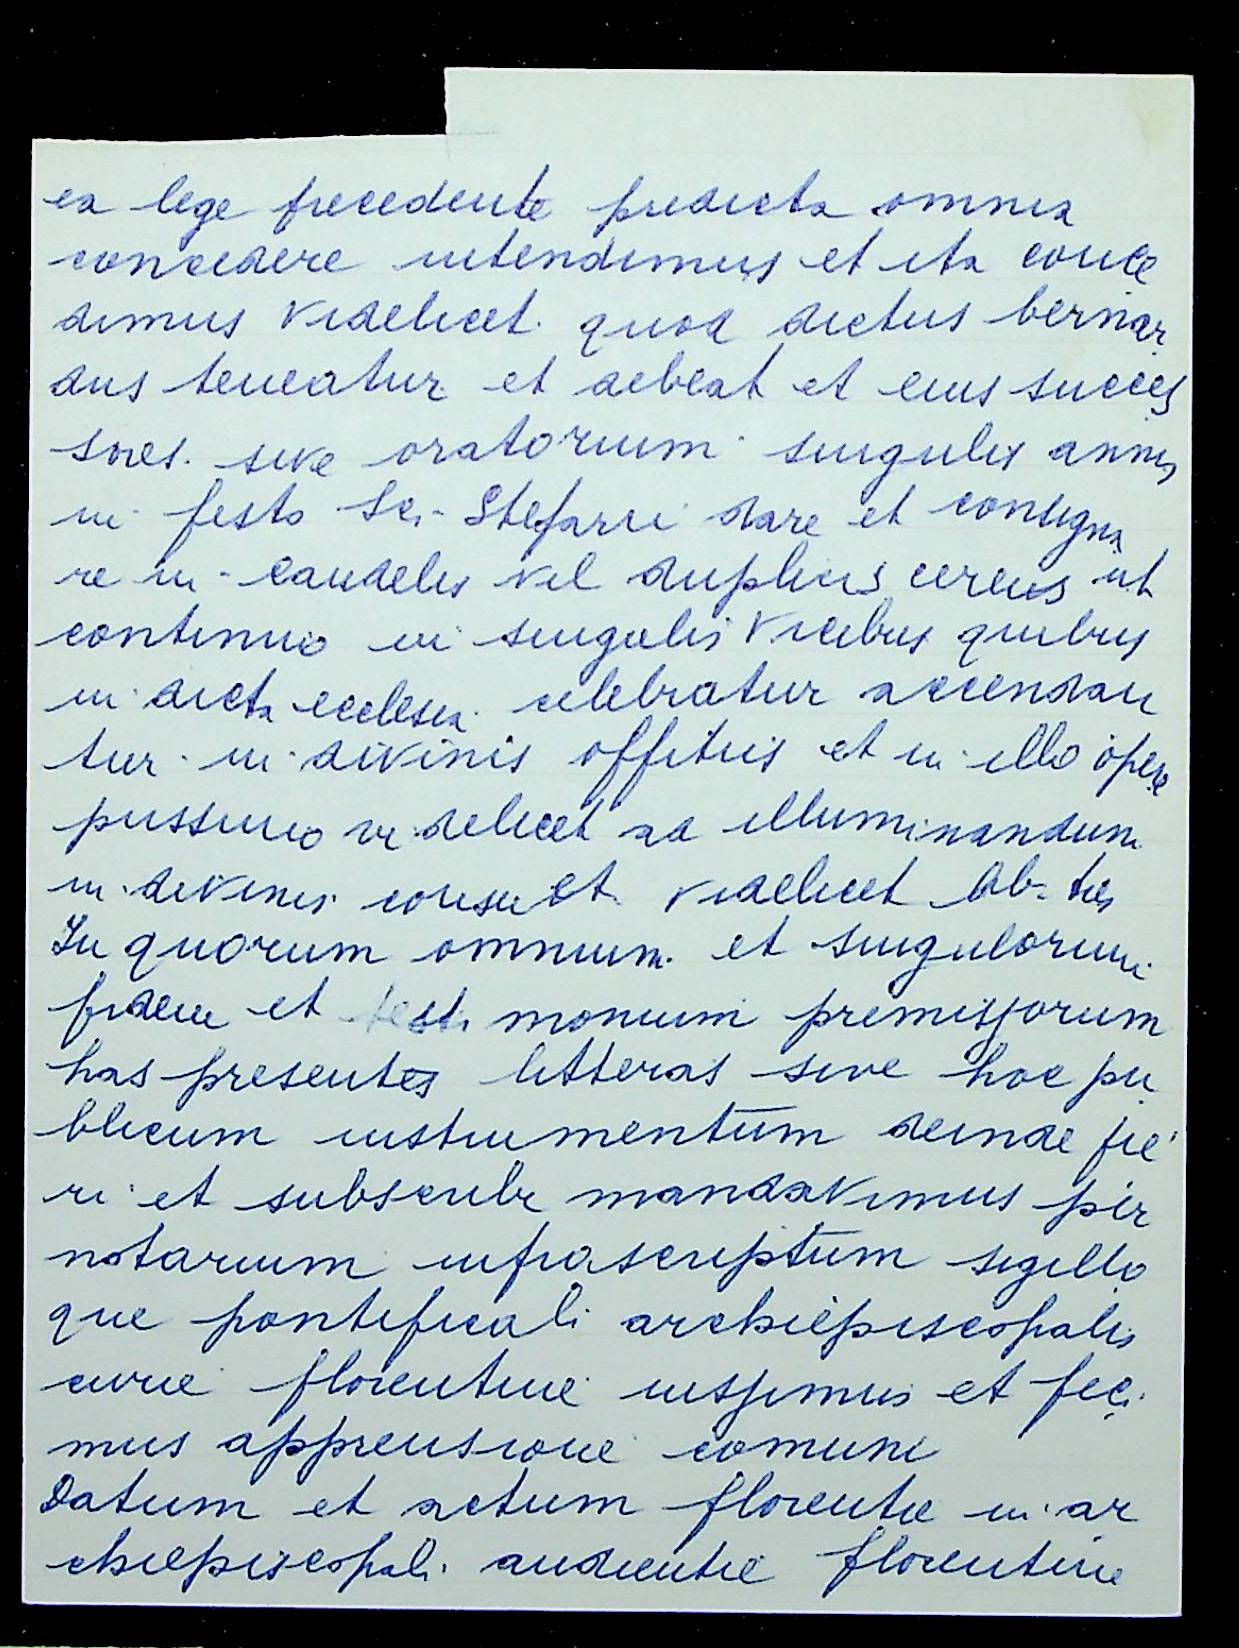 ea lege precedente predicta omnia
concedere intendimus et ita conce
dimus videlicet quod dictus bernar
dus teneatur et debeat et eius succes
sores sive oratorium singulis annis
in festo Sci. Stefani dare et consigna
re in candelis vel duplius cereis ut
continuo in singulis vicibus quibus
in dicta ecclesia celebratur accendan
tur in divinis offitiis et in illo opere
piissimo videlicet ad illuminandum
in divinis videlicet lib. tres
In quorum omnium et singulorum
fidem et testimonium premissorum
has presentes litteras sive hoc pu
blicum instrumentum deinde fie
ri et subscribi mandavimus per
notarium infrascriptum sigillo
que pontificali archiepiscopalis
curie florentine iussimus et feci
mus appensione comuni
Datum et actum florentie in ar
chiepiscopali audientie florentine